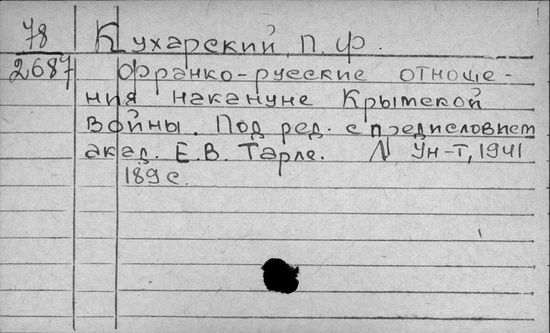 78 Кухарский, П. Ф.
2687 Франко-русские отноше-
ния накануне Крымской
войны. Под ред. с предисловием
акад. Е.В. Тарле. Л Ун-т, 1941
189 с.